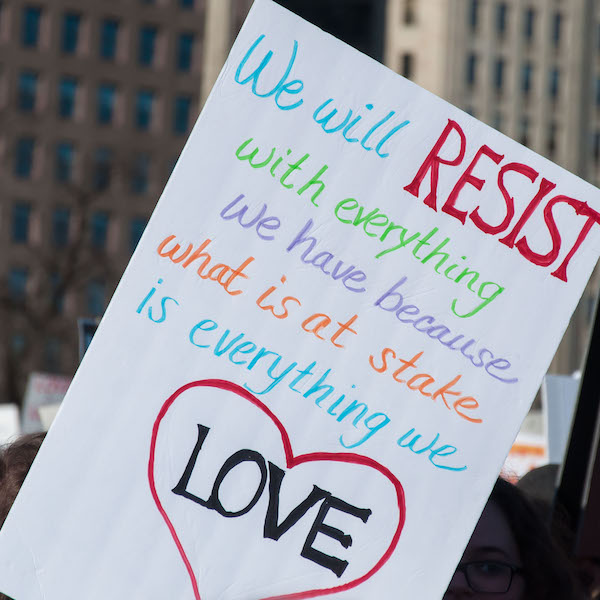 We will RESIST
with everything
we have because
what is at stake
is everything we
LOVE